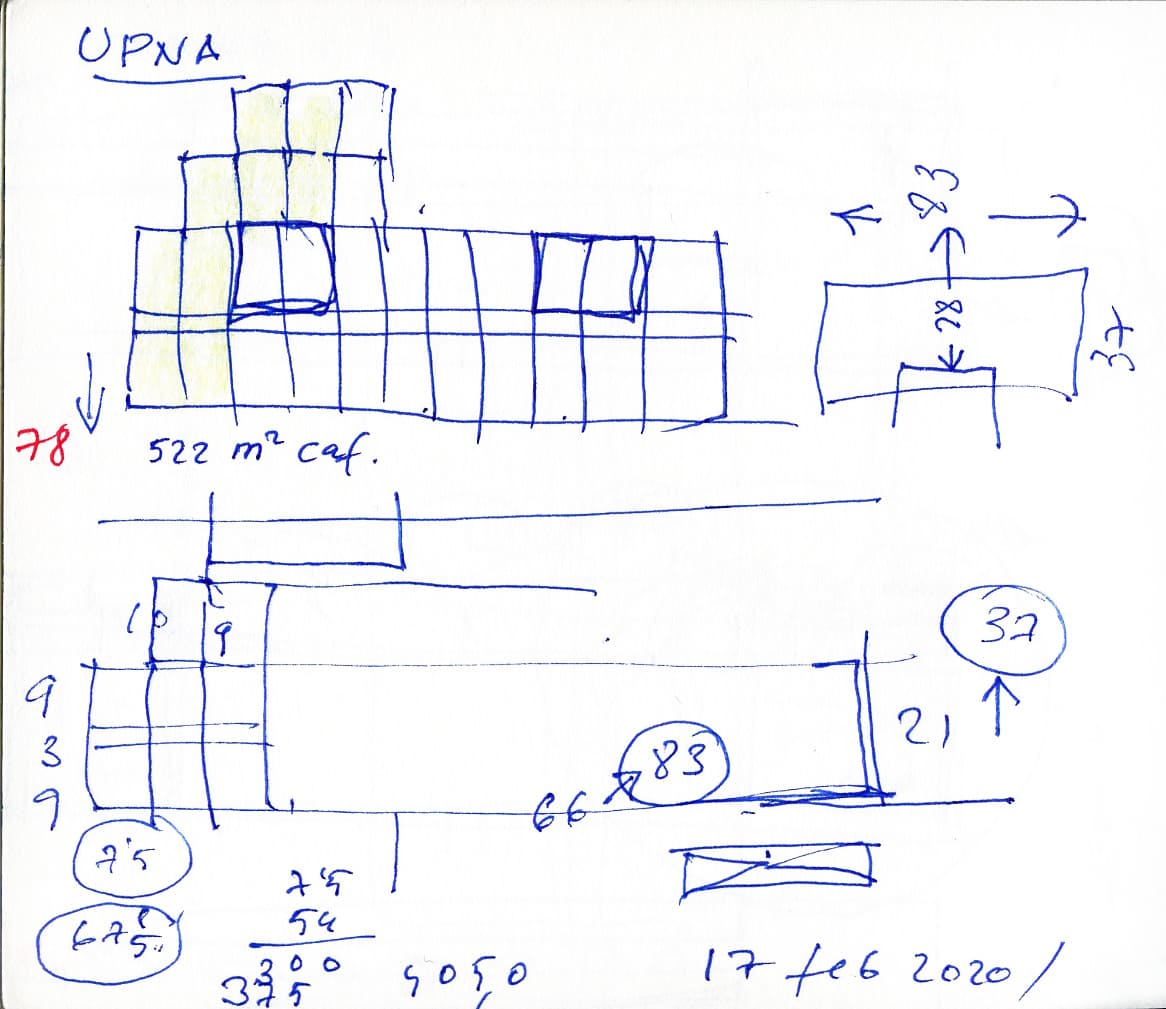 UPNA
83
28
37
78
522 m² caf.
10
9
37
9
3
9
21
83
66
7'5
7'5
54
300
375
4050
17 feb 2020/